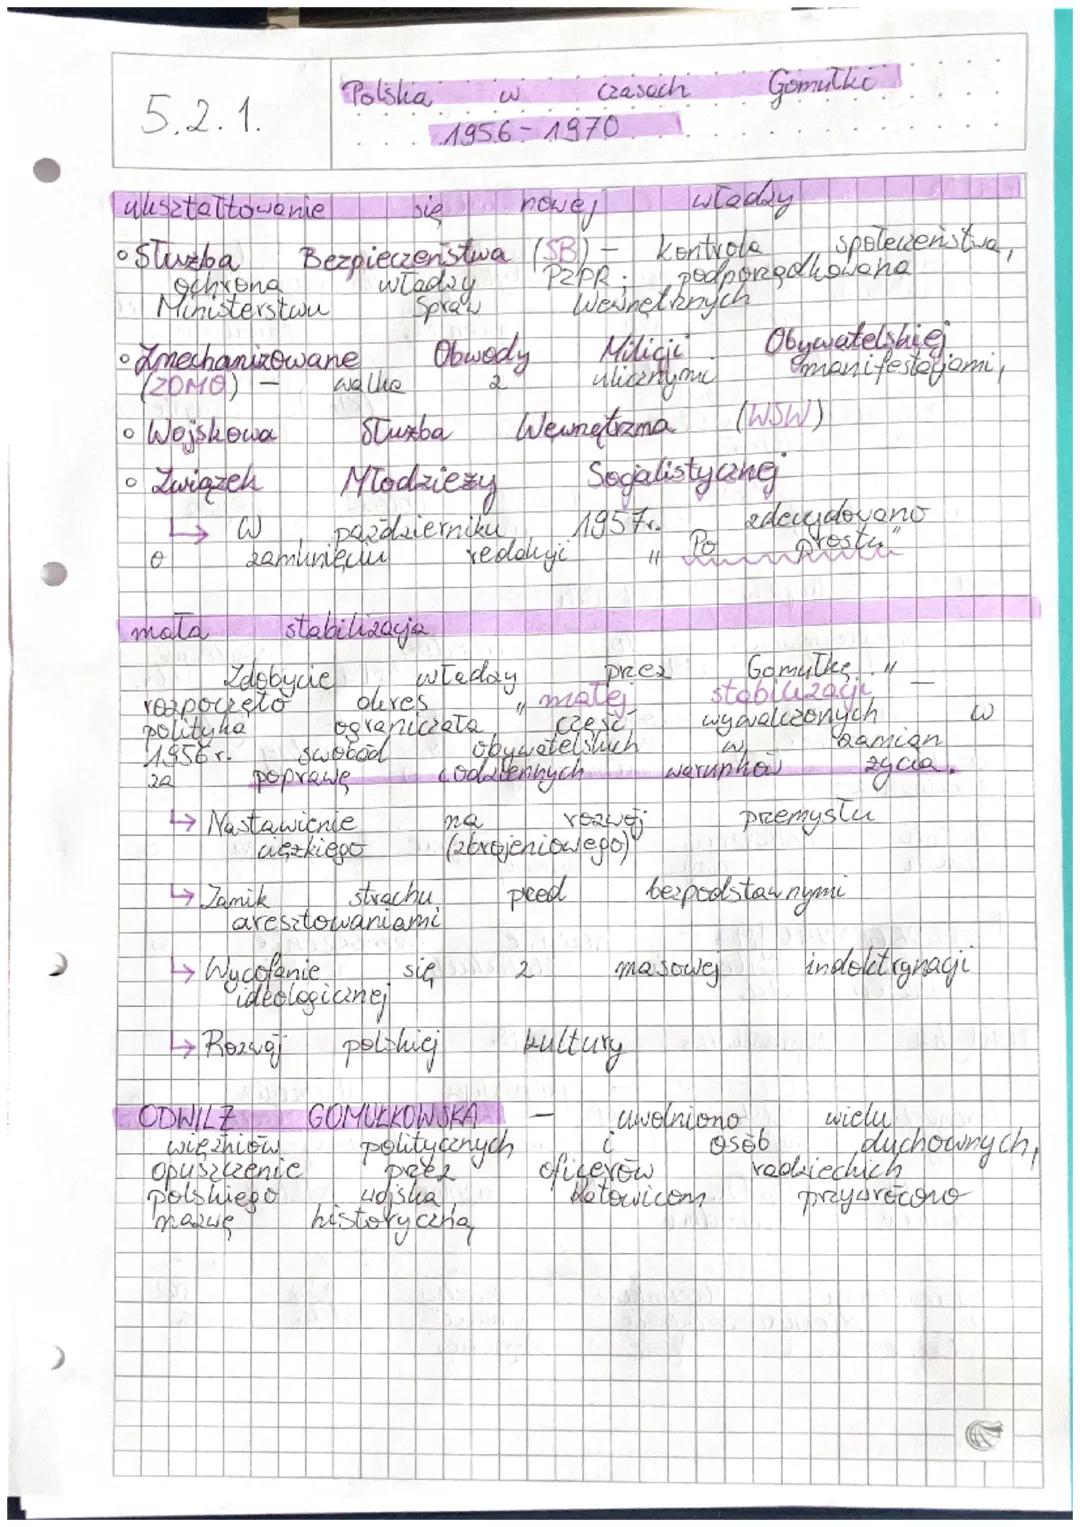 5.2.1.
Polska w czasach Gomułki
1956-1970
ukształtowanie się nowej władzy
Służba Bezpieczeństwa (SB) - kontrola społeczeństwa,
ochrona władzy PZPR; podporządkowana
Ministerstwu Spraw Wewnętrznych
Zmechanizowane Obwody Milicji Obywatelskiej
(ZOMO) - walka z ulicznymi manifestacjami,
Wojskowa Służba Wewnętrzna (WSW)
Związek Młodzieży Socjalistycznej
↳ W październiku 1957r. zdecydowano
o zamknięciu redakcji "Po prostu"
mała stabilizacja
Zdobycie władzy przez Gomułkę
rozpoczęto okres "małej stabilizacji" —
polityka ograniczała część wywalczonych w
1956r. swobód obywatelskich w zamian
za poprawę codziennych warunków życia.
↳ Nastawienie na rozwój przemysłu
ciężkiego (zbrojeniowego)
↳ Zanik strachu przed bezpodstawnymi
aresztowaniami
↳ Wycofanie się z masowej indoktrynacji
ideologicznej
↳ Rozwój polskiej kultury
ODWILŻ GOMUŁKOWSKA — uwolniono wielu
więźniów politycznych i osób duchownych,
opuszczenie przez oficerów radzieckich
polskiego wojska, Katowicom przywrócono
nazwę historyczną